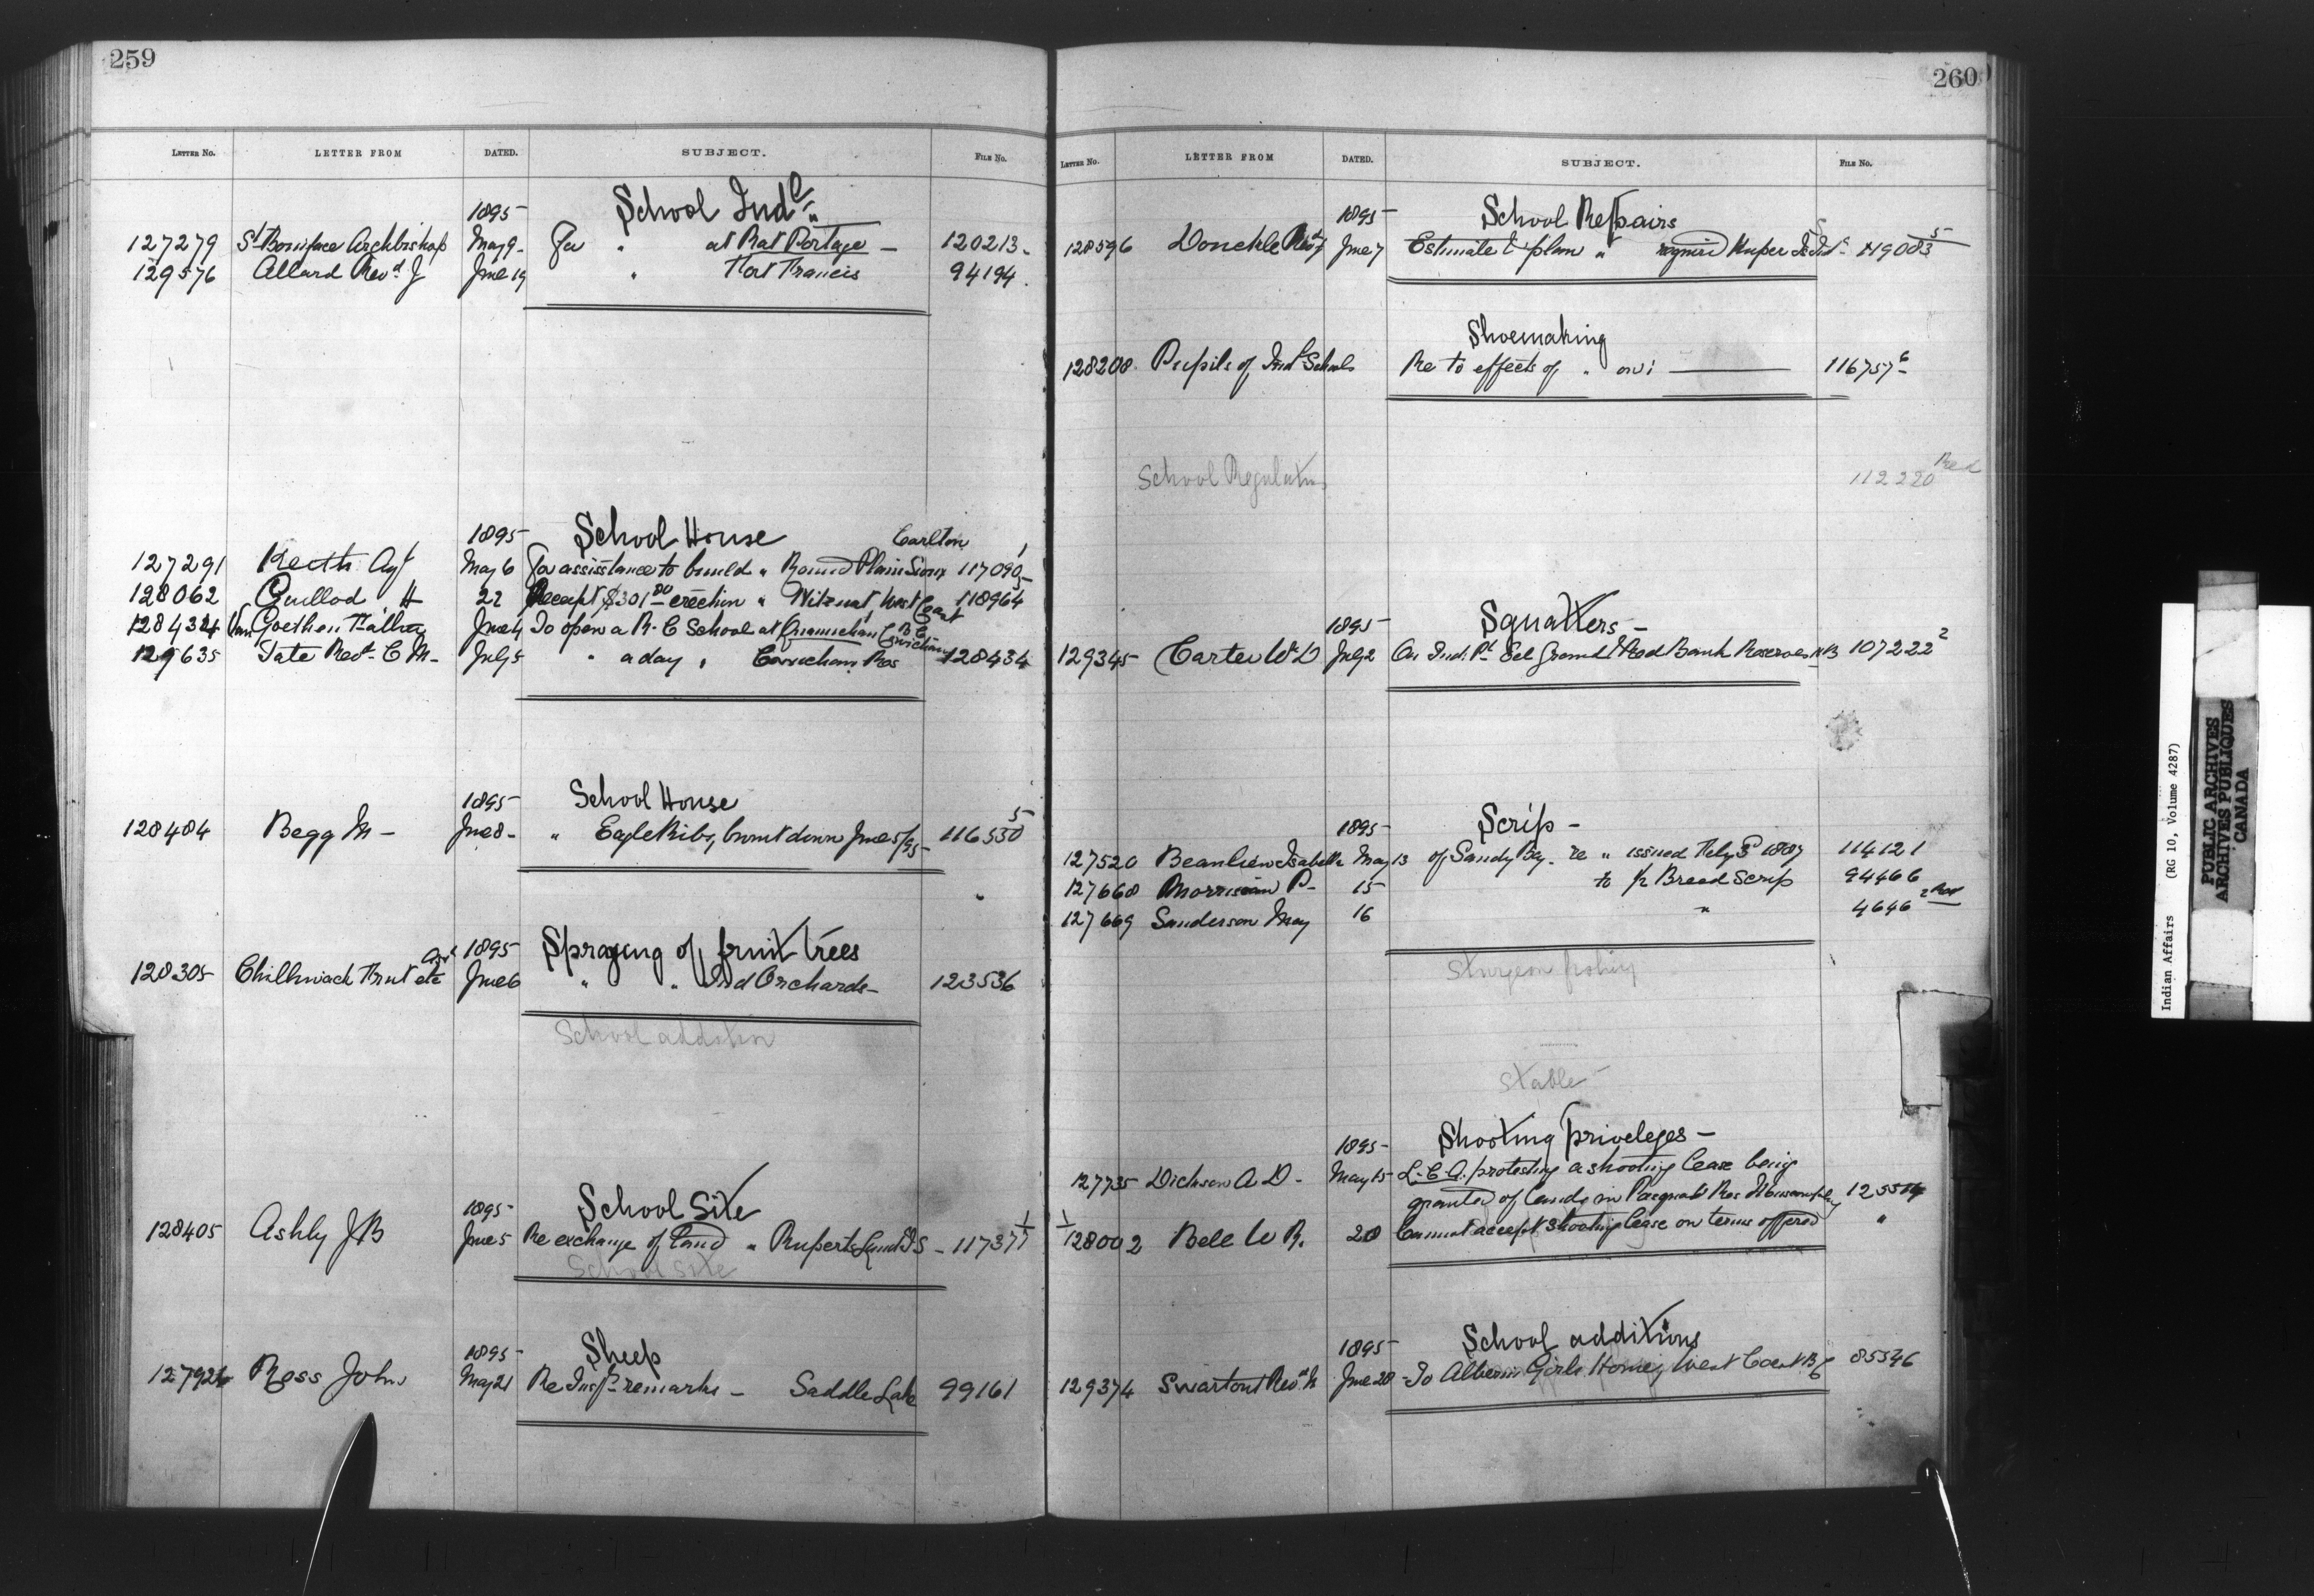 259
LETTER No. LETTER FROM DATED. SUBJECT. FILE No.
1895 School Indl
127279 St Boniface Archbishop May 9 - For " at Rat Portage - 120213 -
129576 Allard Revd J June 19 " Fort Francis 94194.
1895 School House Carlton
127291 Keith Agt May 6 For assistance to build " Round Plain Sioux 117090 1
128062 Guillod H 22 Receipt $301 00 erection " West Coast 118964 5
128434 Van Goethen Father June 4 To open a R. C School at Quamichan Cowichan B C
129635 Tate Revd C M - July 5 " a day " Cowichan Res 128434
1895 School House
128484 Begg M - June 8 - " Eagle Ribs, burnt down June 5/95 - 116530 5
1895 Spraying of fruit trees
128305 Chilliwack Fruit etc Assn June 6 " " Ind Orchards - 123536
School addition
1895 School Site
128405 Ashly J B June 5 Re exchange of land " Ruperts Land I S - 11737
School Site
1895 - Sheep
Ross John May 21 Re Insp remarks - Saddle Lake 99161
260
LETTER No. LETTER FROM DATED. SUBJECT. FILE No.
1895 School Repairs
128596 Donckle Revd June 7 Estimate & plan " required Kuper Is Indl S 119083 5
Shoemaking
128208. Pupils of Indl Schools Re to effects of " on 116757 6
School Regulations 112220 Red
1895 Squatters -
129345 Carter W D July 2 On Ind. Pt Eel Ground & Red Bank Reserves N B 107222 2
1895 - Scrip -
127520 Beaulieu Isabelle May 13 of Sandy Bay. re " issued 1887 114121
127668 Morrison P - 15 to ½ Breed Scrip 94466
127669 Sanderson May 16 " 4646 2 Red
Sturgeon fishing
Stable
1895 - Shooting priveleges -
127735 Dickson A D - May 15 - protesting a shooting lease being
granted of lands in Pasquah Res
128002 Bell W R. 28 Cannot accept shooting lease on terms offered "
1895 School additions
129374 Swartout Revd June 28 - To Alberni Girls Home, West Coast B C 85546
Indian Affairs (RG 10, Volume 4287)
PUBLIC ARCHIVES
ARCHIVES PUBLIQUES
CANADA